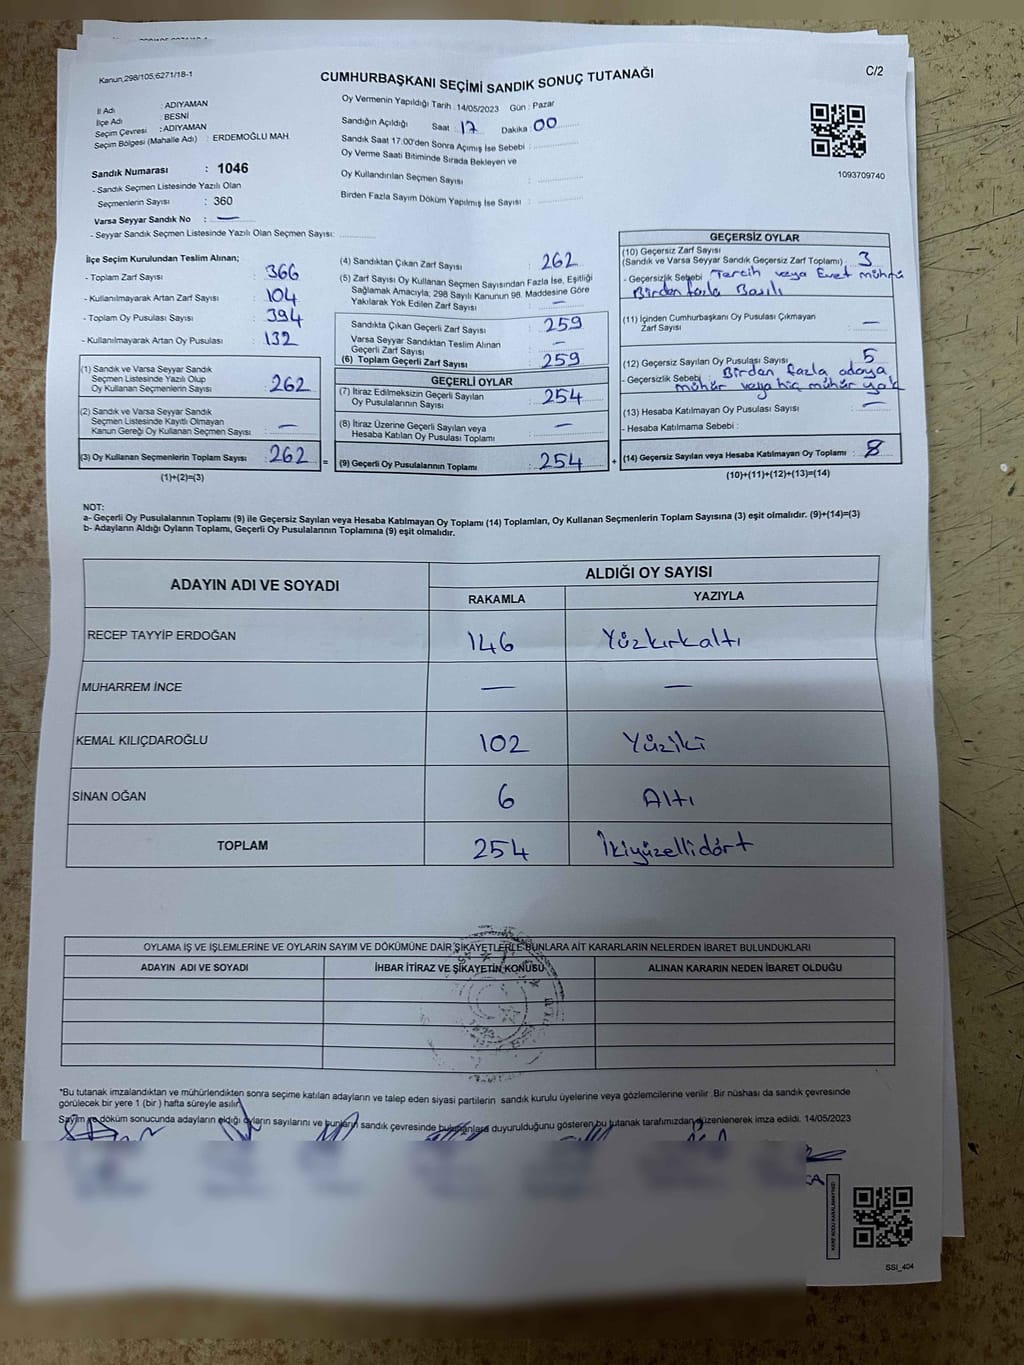 Kanun,298/105,6271/18-1
CUMHURBAŞKANI SEÇİMİ SANDIK SONUÇ TUTANAĞI
C/2
İl Adı : ADIYAMAN
İlçe Adı : BESNİ
Seçim Çevresi : ADIYAMAN
Seçim Bölgesi (Mahalle Adı) : ERDEMOĞLU MAH.
Sandık Numarası : 1046
- Sandık Seçmen Listesinde Yazılı Olan
Seçmenlerin Sayısı : 360
Varsa Seyyar Sandık No : —
- Seyyar Sandık Seçmen Listesinde Yazılı Olan Seçmen Sayısı:
Oy Vermenin Yapıldığı Tarih : 14/05/2023 Gün : Pazar
Sandığın Açıldığı Saat : 17 Dakika : 00
Sandık Saat 17:00'den Sonra Açımış İse Sebebi :
Oy Verme Saati Bitiminde Sırada Bekleyen ve
Oy Kullandırılan Seçmen Sayısı :
Birden Fazla Sayım Döküm Yapılmış İse Sayısı :
1093709740
İlçe Seçim Kurulundan Teslim Alınan;
- Toplam Zarf Sayısı : 366
- Kullanılmayarak Artan Zarf Sayısı : 104
- Toplam Oy Pusulası Sayısı : 394
- Kullanılmayarak Artan Oy Pusulası : 132
(1) Sandık ve Varsa Seyyar Sandık
Seçmen Listesinde Yazılı Olup
Oy Kullanan Seçmenlerin Sayısı : 262
(2) Sandık ve Varsa Seyyar Sandık
Seçmen Listesinde Kayıtlı Olmayan
Kanun Gereği Oy Kullanan Seçmen Sayısı : —
(3) Oy Kullanan Seçmenlerin Toplam Sayısı : 262 =
(1)+(2)=(3)
(4) Sandıktan Çıkan Zarf Sayısı : 262
(5) Zarf Sayısı Oy Kullanan Seçmen Sayısından Fazla İse, Eşitliği
Sağlamak Amacıyla; 298 Sayılı Kanunun 98. Maddesine Göre
Yakılarak Yok Edilen Zarf Sayısı : —
Sandıkta Çıkan Geçerli Zarf Sayısı : 259
Varsa Seyyar Sandıktan Teslim Alınan
Geçerli Zarf Sayısı : —
(6) Toplam Geçerli Zarf Sayısı : 259
GEÇERLİ OYLAR
(7) İtiraz Edilmeksizin Geçerli Sayılan
Oy Pusulalarının Sayısı : 254
(8) İtiraz Üzerine Geçerli Sayılan veya
Hesaba Katılan Oy Pusulası Toplamı : —
(9) Geçerli Oy Pusulalarının Toplamı : 254 +
GEÇERSİZ OYLAR
(10) Geçersiz Zarf Sayısı
(Sandık ve Varsa Seyyar Sandık Geçersiz Zarf Toplamı) : 3
- Geçersizlik Sebebi : Tercih veya Evet mührü
Birden fazla Basılı
(11) İçinden Cumhurbaşkanı Oy Pusulası Çıkmayan
Zarf Sayısı : —
(12) Geçersiz Sayılan Oy Pusulası Sayısı : 5
- Geçersizlik Sebebi : Birden fazla adaya
mühür veya hiç mühür yok
(13) Hesaba Katılmayan Oy Pusulası Sayısı : —
- Hesaba Katılmama Sebebi :
(14) Geçersiz Sayılan veya Hesaba Katılmayan Oy Toplamı : 8
(10)+(11)+(12)+(13)=(14)
NOT:
a- Geçerli Oy Pusulalarının Toplamı (9) ile Geçersiz Sayılan veya Hesaba Katılmayan Oy Toplamı (14) Toplamları, Oy Kullanan Seçmenlerin Toplam Sayısına (3) eşit olmalıdır. (9)+(14)=(3)
b- Adayların Aldığı Oyların Toplamı, Geçerli Oy Pusulalarının Toplamına (9) eşit olmalıdır.
ADAYIN ADI VE SOYADI
ALDIĞI OY SAYISI
RAKAMLA YAZIYLA
RECEP TAYYİP ERDOĞAN 146 Yüzkırkaltı
MUHARREM İNCE — —
KEMAL KILIÇDAROĞLU 102 Yüziki
SİNAN OĞAN 6 Altı
TOPLAM 254 İkiyüzellidört
OYLAMA İŞ VE İŞLEMLERİNE VE OYLARIN SAYIM VE DÖKÜMÜNE DAİR ŞİKAYETLERLE BUNLARA AİT KARARLARIN NELERDEN İBARET BULUNDUKLARI
ADAYIN ADI VE SOYADI İHBAR İTİRAZ VE ŞİKAYETİN KONUSU ALINAN KARARIN NEDEN İBARET OLDUĞU
*Bu tutanak imzalandıktan ve mühürlendikten sonra seçime katılan adayların ve talep eden siyasi partilerin sandık kurulu üyelerine veya gözlemcilerine verilir. Bir nüshası da sandık çevresinde
görülecek bir yere 1 (bir) hafta süreyle asılır.
Sayım ve döküm sonucunda adayların aldığı oyların sayılarını ve bunların sandık çevresinde bulunanlara duyurulduğunu gösteren bu tutanak tarafımızdan düzenlenerek imza edildi. 14/05/2023
SSI_404